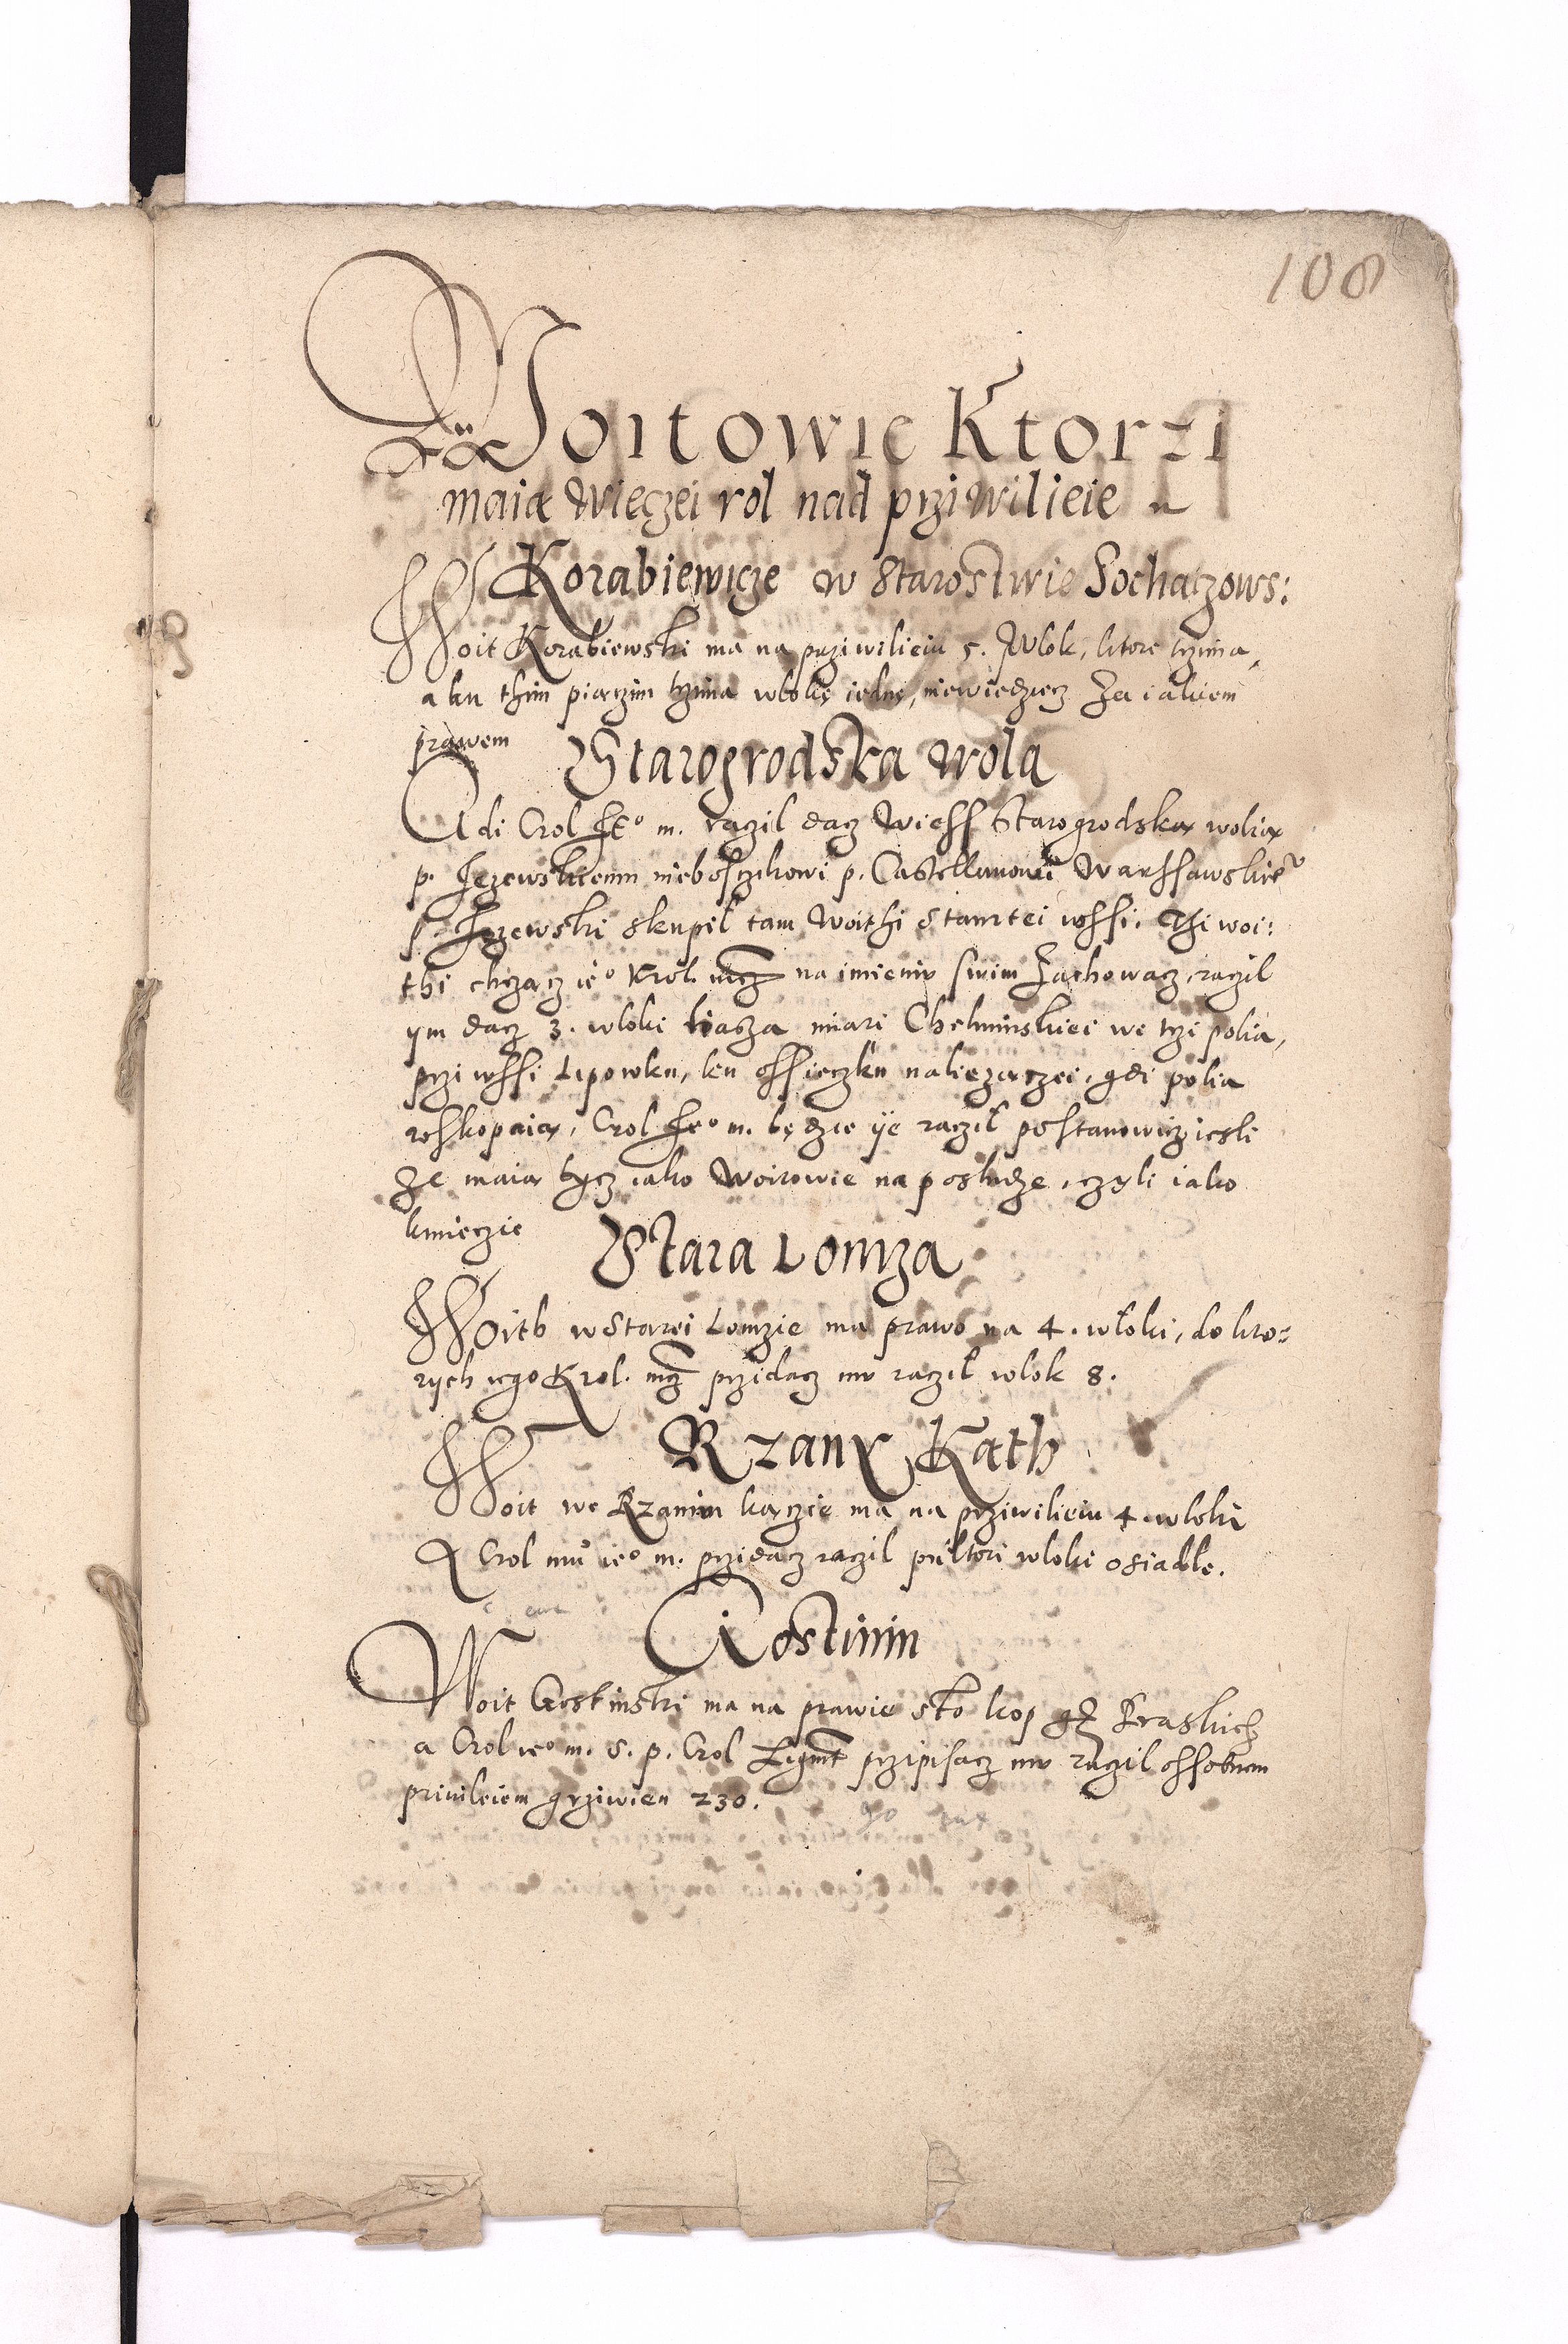 108
Woitowie Ktorzi
maią Wieczei rol nad prziwilieie
Korabiewicze w Starostwie Sochaczows:
Woit Korabiewski ma na prziwilieiu 5. Wlok, ktore trzima,
a ku thim piączim trzima wlokę iednę, niewiedziecz Za iakiem
prawem
Starogrodska wola
Gdi Crol Ieº m. raczil dacz Wiess Starogrodską wolią
p. Jezewskiemu nieboszczikowi p. Castellanowi Warssawskieº
p. Jezewski skupil tam Woithi Stamtei wssi. Thi woi:
thi chcącz ieº Krol. mcz na imieniu swim Zachowacz, raczil
ym dacz 3. wloki liasza miari Chelminskiei we trzi polia,
przi wssi Lipowku, ku ossieczku naliezączei, gdi polia
roskopaią, Crol Ieº m. będzie ÿe raczil postanowicz iesli
ze maią bycz iako Woitowie na posludze, czyli iako
kmieczie
Stara Lomza
Woith w Starei Lomzie ma prawo na 4. wloki, do kto:
rych iego Krol. mcz przidacz mu raczil wlok 8.
Rzany Kąth
Woit we Rzanim kączie ma na prziwilieiu 4. wloki
A Crol mu ieº m. przidacz raczil pultori wloki osiadle.
Gostinin
Woit Gostinski ma na prawie sto kop gr Praskich
a Crol ieº m. S. p. Crol Zigmt przipisacz mu raczil ossobnem
priuileiem grziwien 230.